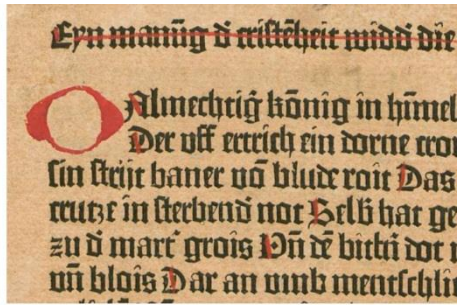 Eyn manũg d̃ cristẽheit widd̃ die
O Almechtig̃ kõnig in hĩmel
Der uff ertrich ein dorne cron
sin strijt baner võ blude roit Das
crutze in sterbend not Selb̃ hat ge
zu d̃ mart̃ grois Vñ dẽ bittñ dot
vñ blois Dar an vmb mentschlin